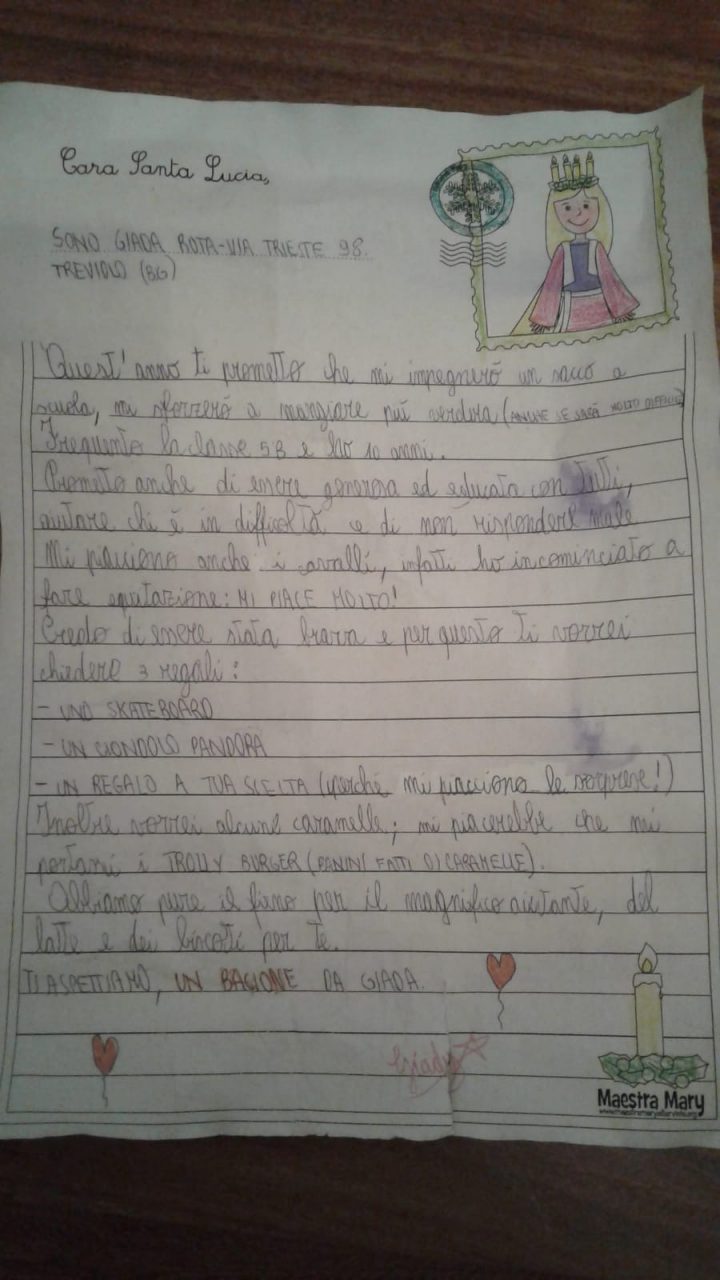 Cara Santa Lucia,
SONO GIADA ROTA-VIA TRIESTE 98.
TREVIOLO (BG)
Quest'anno ti prometto che mi impegnerò un sacco a
scuola, mi sforzerò a mangiare più verdura (ANCHE SE SARÀ MOLTO DIFFICILE)
Frequento la classe 5B e ho 10 anni.
Prometto anche di essere generosa ed educata con tutti,
aiutare chi è in difficoltà e di non rispondere male
Mi piacciono anche i cavalli, infatti ho incominciato a
fare equitazione: MI PIACE MOLTO!
Credo di essere stata brava e per questo ti vorrei
chiedere 3 regali:
- UNO SKATEBOARD
- UN CIONDOLO PANDORA
- UN REGALO A TUA SCELTA (perché mi piacciono le sorprese!)
Inoltre vorrei alcune caramelle; mi piacerebbe che mi
portassi i TROLLY BURGER (PANINI FATTI DI CARAMELLE).
Abbiamo pure il fieno per il magnifico aiutante, del
latte e dei biscotti per te.
TI ASPETTIAMO, UN BACIONE DA GIADA.
Giada
Maestra Mary